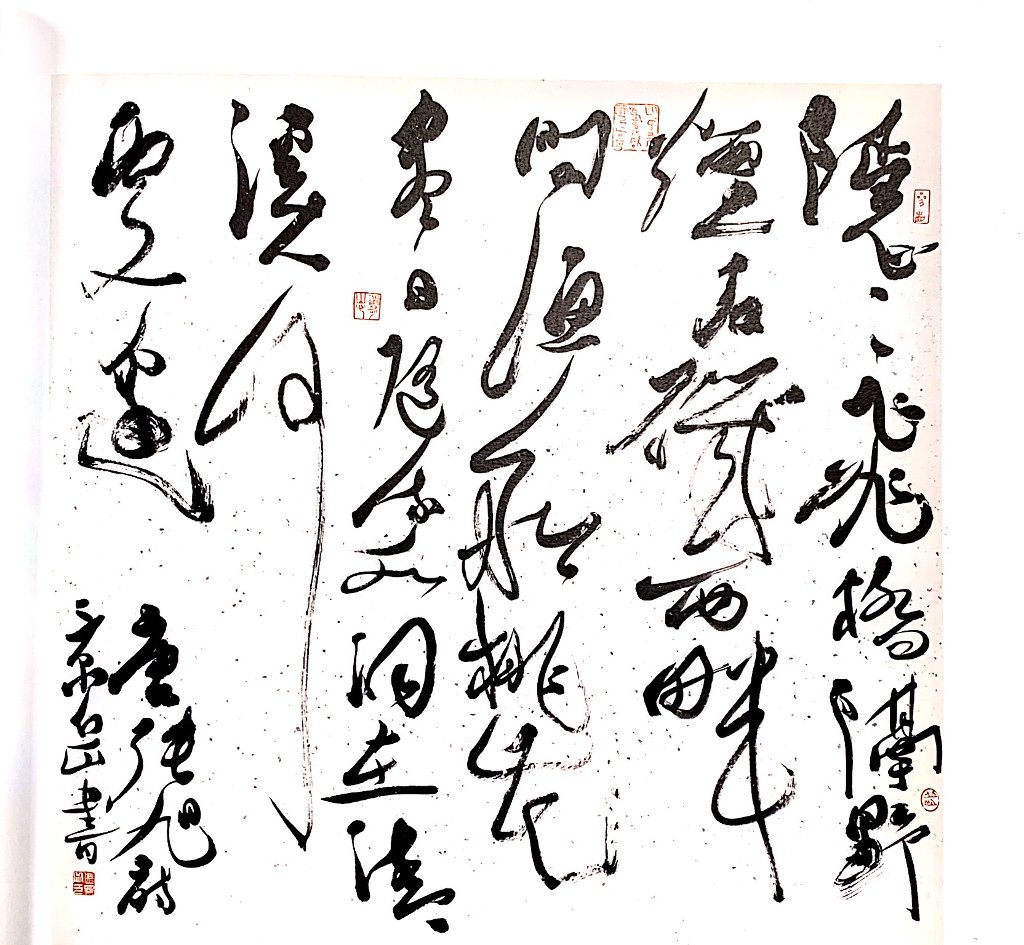 隱〻飛橋隔野
煙石磯西畔
問漁船桃花
盡日隨流水洞在清
溪何
處邊
唐張旭詩
景岳書